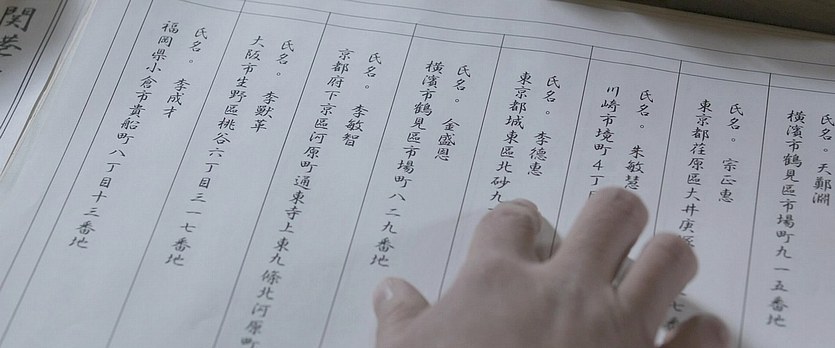 氏名。天鄭淵
横濱市鶴見區市場町九一五番地
氏名。宗正惠
東京都荏原區大井庚
氏名。朱敏慧
川崎市境町4丁
氏名。李德惠
東京都城東區北砂九
氏名。金盛恩
横濱市鶴見區市場町八二九番地
氏名。李敏智
京都府下京區河原町通東寺上東九條北河原町
氏名。李獸革
大阪市生野區桃谷六丁目三一七番地
氏名。李成才
福岡県小倉市貴船町八丁目十三番地